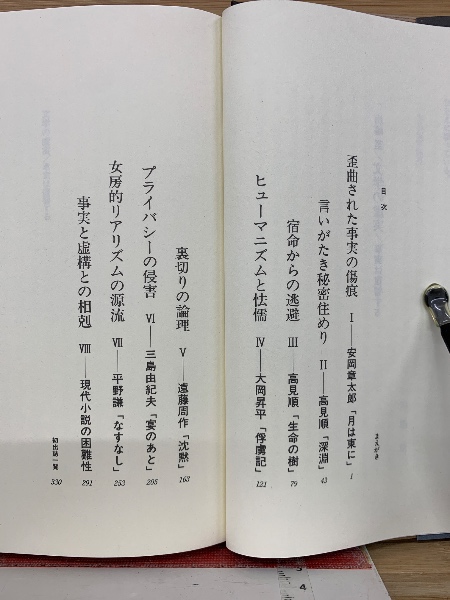 目次
まえがき
歪曲された事実の傷痕 Ⅰ——安岡章太郎「月は東に」 1
言いがたき秘密住めり Ⅱ——高見順「深淵」 43
宿命からの逃避 Ⅲ——高見順「生命の樹」 79
ヒューマニズムと怯懦 Ⅳ——大岡昇平「俘虜記」 121
裏切りの論理 Ⅴ——遠藤周作「沈黙」 163
プライバシーの侵害 Ⅵ——三島由紀夫「宴のあと」 205
女房的リアリズムの源流 Ⅶ——平野謙「なすなし」 253
事実と虚構との相剋 Ⅷ——現代小説の困難性 291
初出誌一覧 330